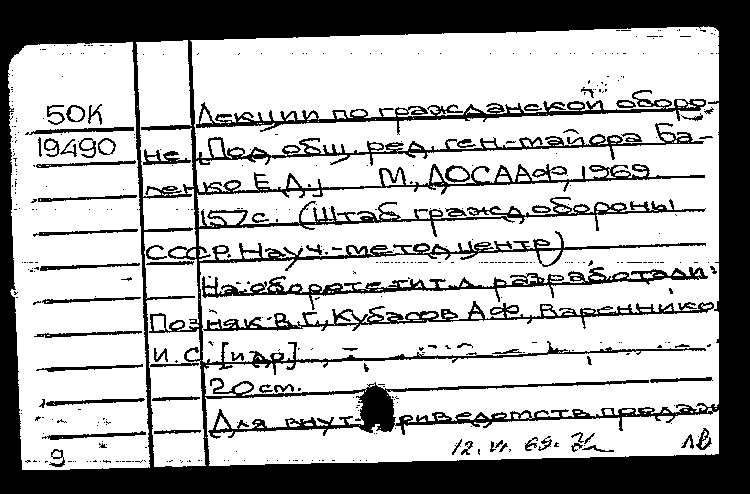 50К Лекции по гражданской оборо-
19490 не. Под общ. ред. ген.-майора Ба-
ленко Е.Д., М., ДОСААФ, 1969
157 с. (Штаб гражд. обороны
СССР. Науч.-метод центр)
На обороте тит. л. разработали:
Позняк В.Г., Кубасов А.Ф., Варенников
И.С. [и др.]
20 ст.
Для внут
9 12. 69. лв